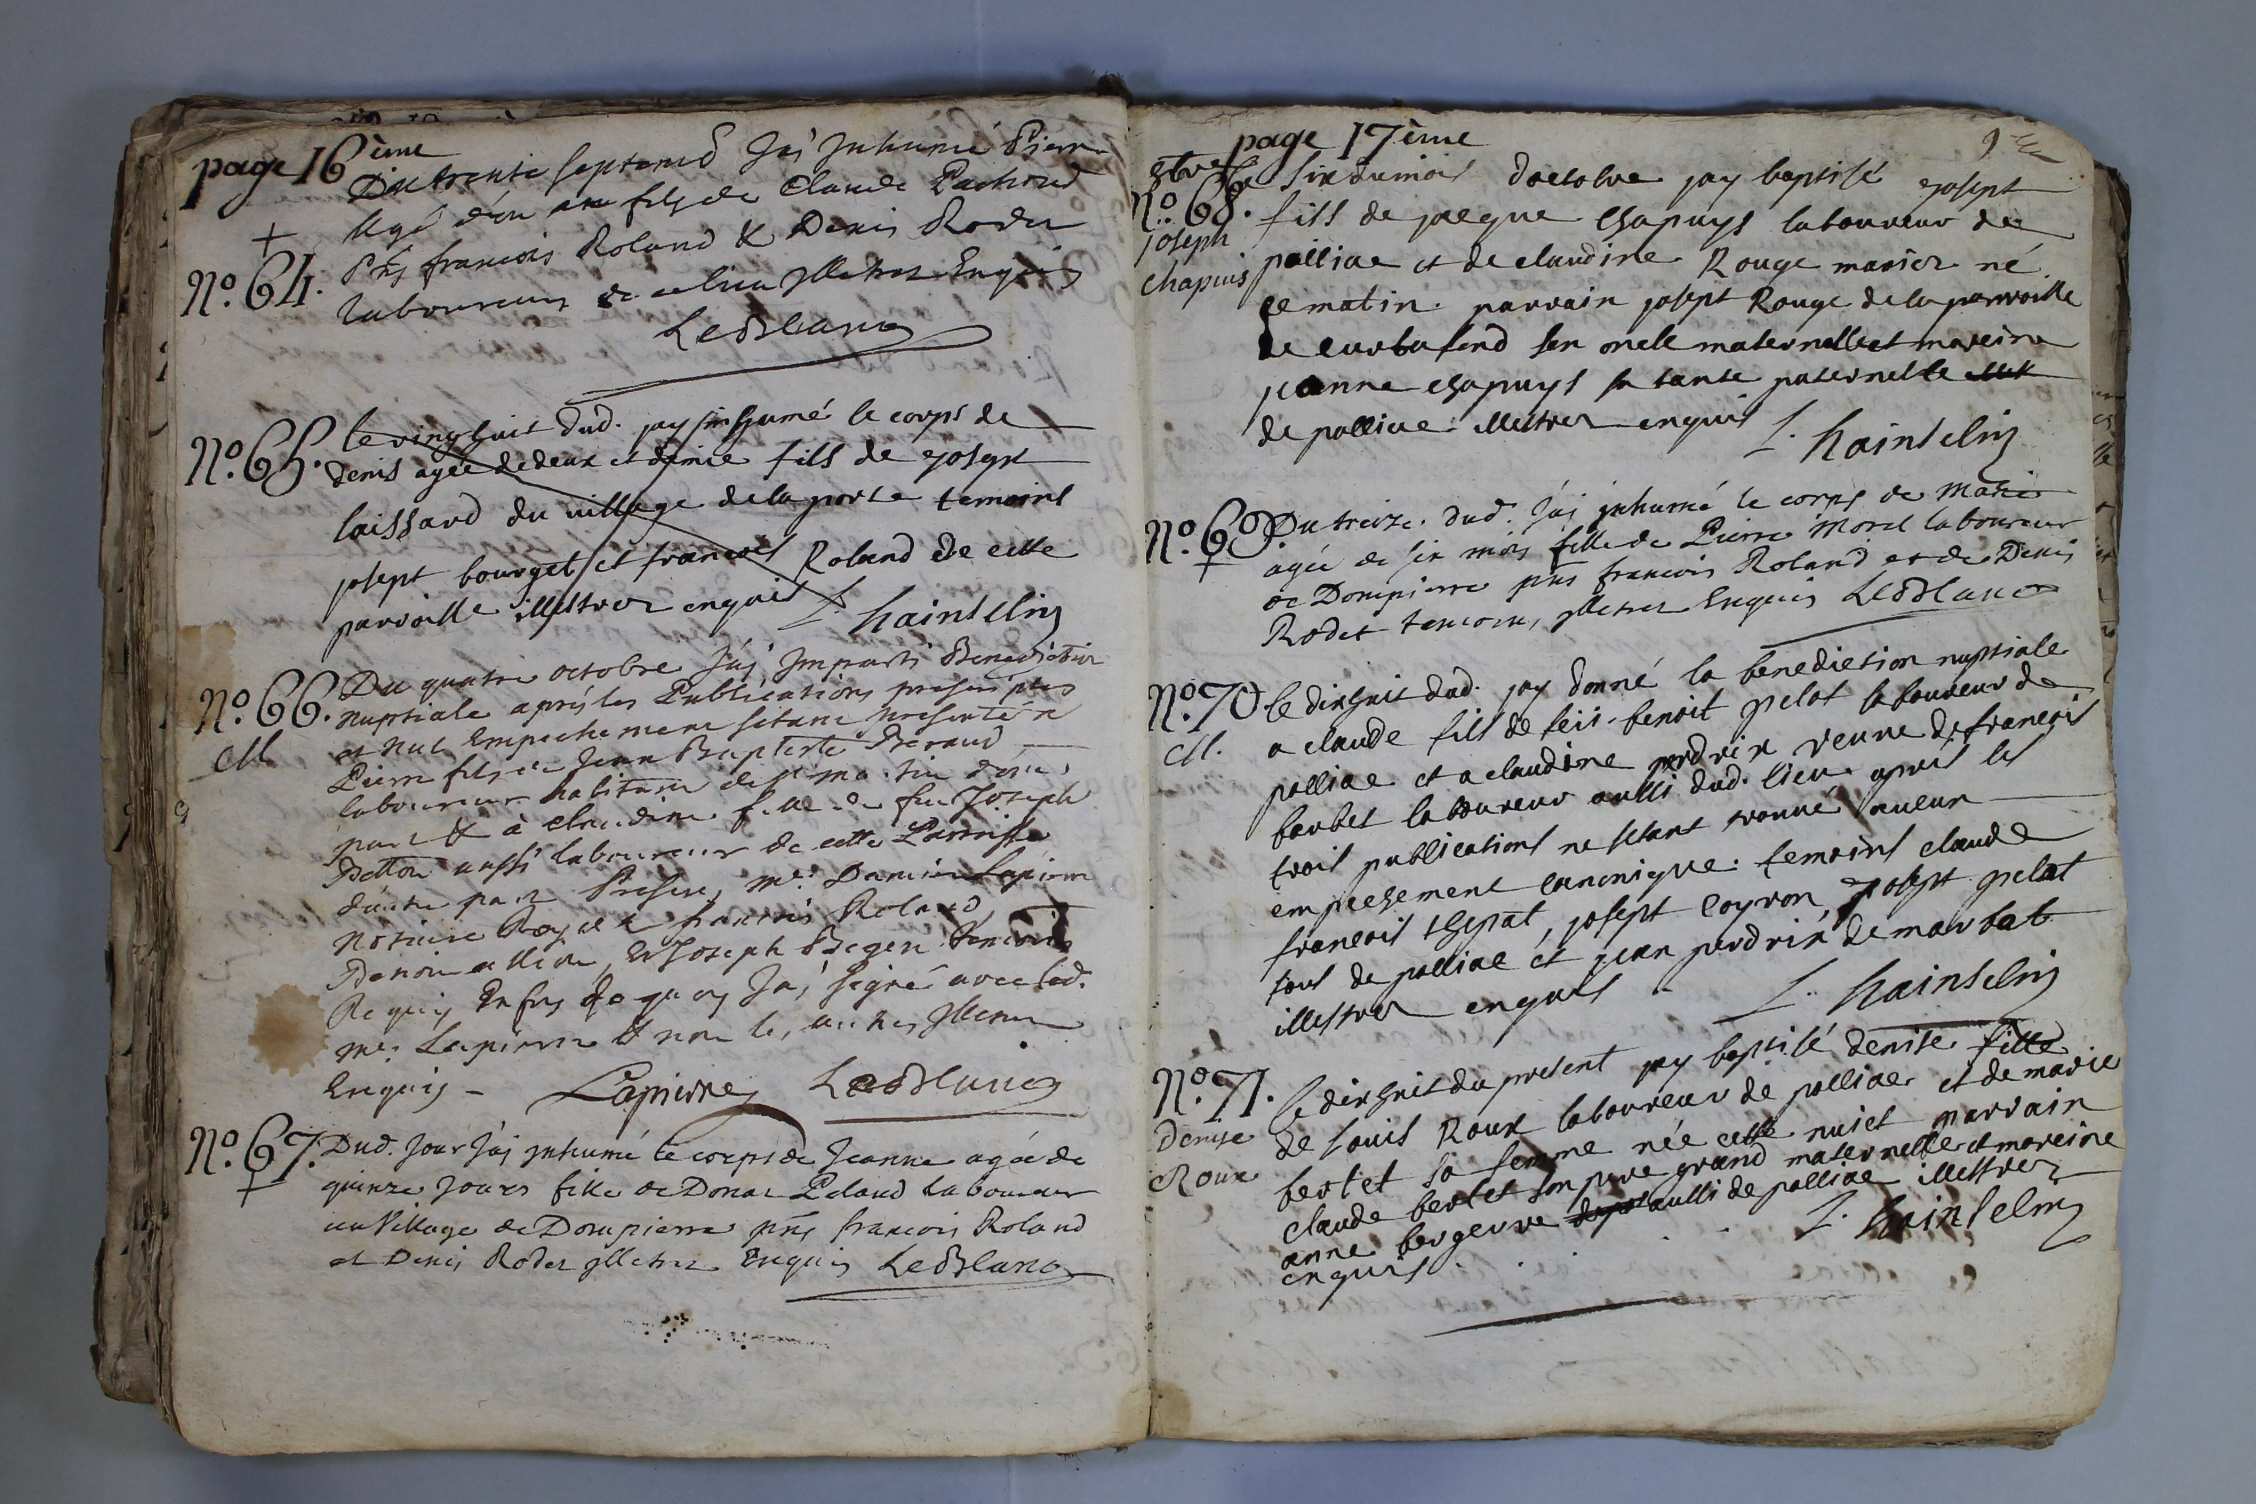 page 16ème
Du trente septemb. J'ai Inhumé Pierre
Agé d'un an fils de Claude Pachoud
+
pns françois Roland & Denis Rodet
No. 64.
laboureurs de ce lieu Illetrez Enquis
LeBlanc
No. 65. le vingt huit dud. jay inhumé le corps de
denis agée de deux et demie fils de josept
laissard du village de la porte temoins
josept bourget et francois Roland de cette
parroisse illestrez enquis L. hainselin
No. 66. Du quatre octobre J'ai Imparti Benediction
M nuptiale après les Publications prescriptes
et Nul Empechement sétant presenté a
Pierre fils de Jean Baptiste Beraud
laboureur habitant de d'une
part & à Claudine fille de feu Joseph
aussi laboureur de cette Parroisse
d'autre part Presens, me. Damien Lapierre
Notaire Royal & francois Roland
Benoit, & Joseph Temoins
Requis En foy de quoy J'ai signé avec led.
me. Lapierre & non les autres Illetrez
Enquis - Lapierre LeBlanc
No. 67. Dud. Jour J'ai Inhumé le corps de Jeanne agée de
+ quinze Jours fille de Donat Pelaud laboureur
au Village de Dompierre pns francois Roland
et Denis Rodet Illetrez Enquis LeBlanc
page 17ème
9
8bre le six du mois d'octobre jay baptisé josept
No. 68. fils de jacque Chapuys laboureur de
joseph
chapuis palliae et de claudine Rouge mariez né
ce matin. parrain josept Rouge de la parroisse
de curtafond son oncle maternelle et mareine
jeanne chapuys sa tante paternelle
de palliae illestrez enquis L. hainselin
No. 69. Du treize. dud. J'ai inhumé le corps de Marie
+ agée de six mois fille de Pierre Morel laboureur
de Dompierre pns francois Roland et de Denis
Rodet temoins, Illetrez Enquis LeBlanc
No. 70 le dixhuit dud. jay donné la benediction nuptiale
M. a claude fils de feu benoit pelat laboureur de
palliae et a claudine perdrix veuve de francois
barbet laboureur aussi dud. lieu apres les
trois publications ne sétant trouvé aucun
empechement canonique. temoins claude
francois, josept coyron, josept pelat
tous de palliae et jean perdrix de marbat
illestrez enquis. L. hainselin
No. 71. le dixhuit du present jay baptisé denise fille
Denise de Louis Roux laboureur de palliae et de marie
Roux bertet sa femme née cette nuict parrain
claude bertet son pere grand maternelle et mareine
anne bergerve aussi de palliae illestrez
enquis. L. hainselin